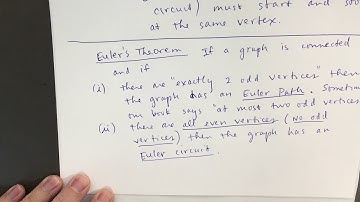 circuit) must start and
at the same vertex.
Euler's Theorem If a graph is connected
and if
(i) there are "exactly 2 odd vertices" then
the graph has an Euler Path. Sometimes
our book says "at most two odd vertices
(ii) there are all even vertices (no odd
vertices) then the graph has an
Euler circuit.